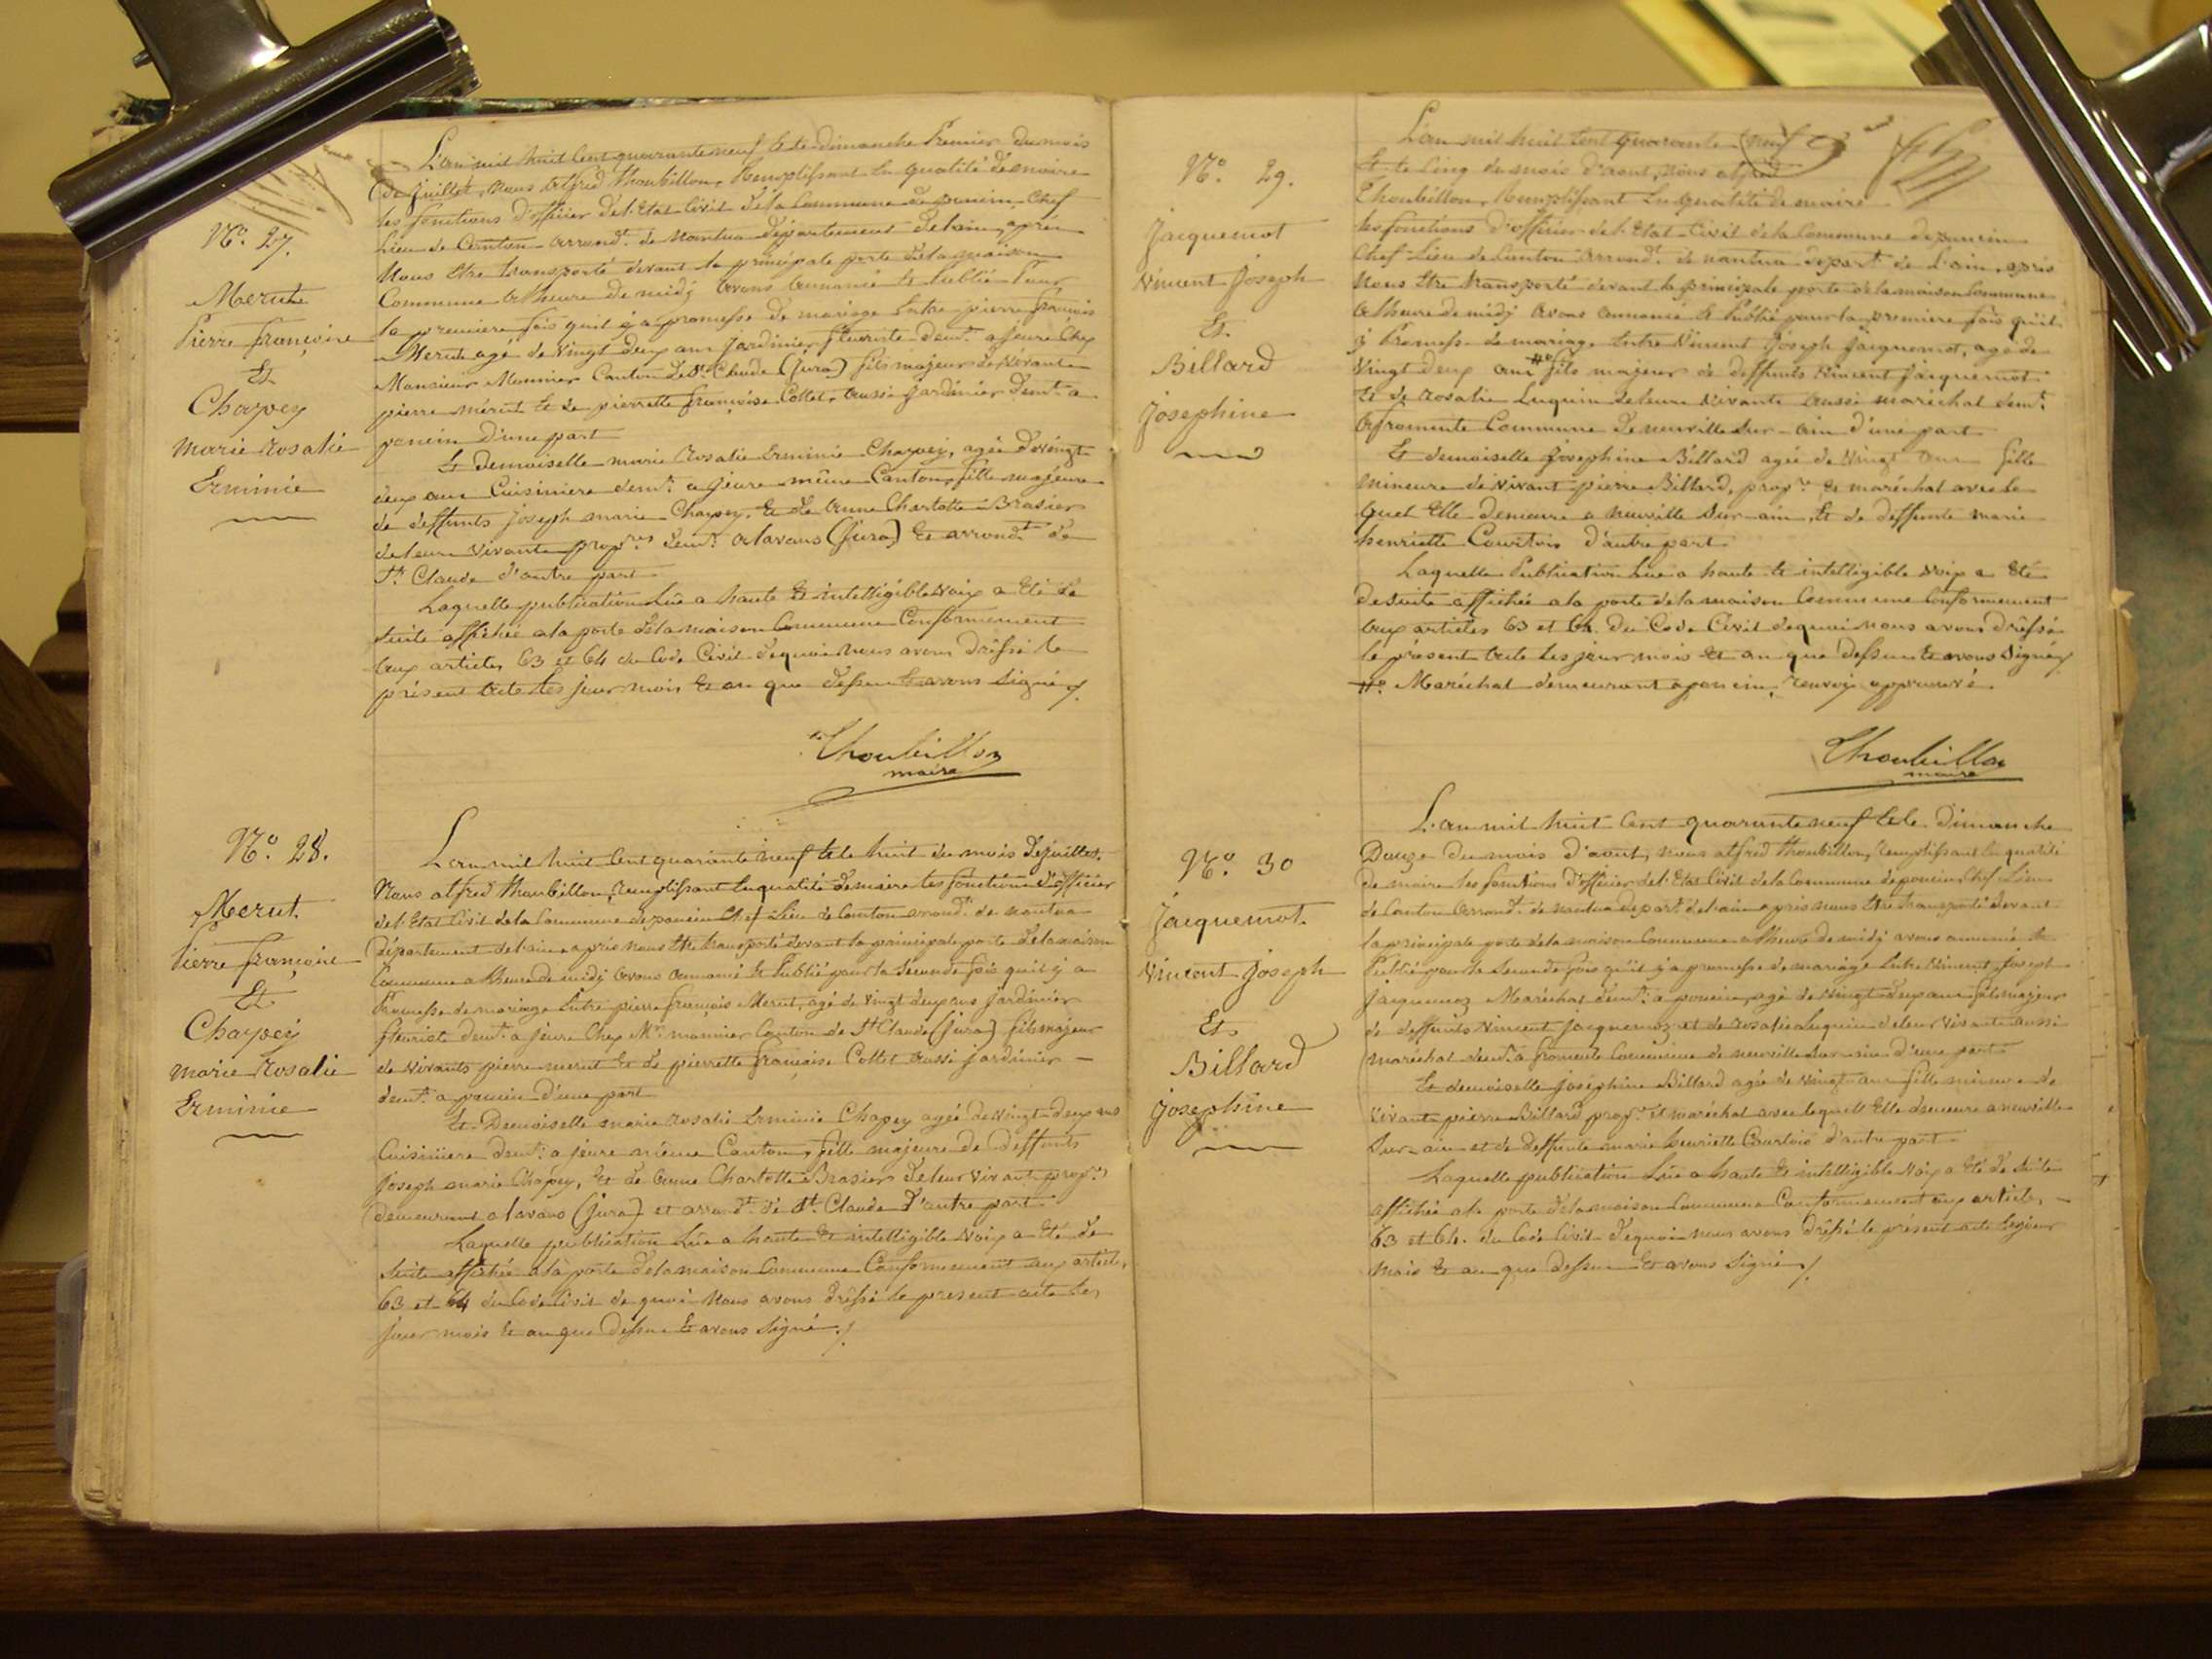 N.° 27.
Merut
Pierre françois
Et
Chapey
marie Rosalie
Erminie
L'an mil huit Cent quarante neuf & le dimanche Premier du mois
de Juillet, nous Alfred Thoubillon, Remplissant la qualité de maire
les fonctions d'officier de l'Etat Civil de la Commune de poncin Chef
Lieu de Canton arrond.t de nantua département de l'ain, après
Nous être transporté devant la principale porte de la maison
Commune a l'heure de midj avons annoncé & Publié Pour
la premiere fois quil y a promesse de mariage Entre pierre francois
Merut agé de vingt deux ans jardinier fleuriste dem.t a jeure Chez
Monsieur Monnier Canton de St Claude (jura) fils majeur de vivants
pierre mérut & de pierrette françoise Collet, aussi jardinier dem.t a
poncin d'une part
Et demoiselle marie Rosalie Erminie Chapey, agée de vingt
deux ans Cuisiniere dem.t a jeure même Canton, fille majeure
de deffunts joseph marie Chapey, & de anne Charlotte Brasier
de leur vivants prop.res dem.t a lavans (jura) & arrond.t de
St. Claude d'autre part
Laquelle publication Lüe a haute & intelligible Voix a Eté de
Suite affichée a la porte de la maison Commune Conformement
aux articles 63 et 64 du Code Civil de quoi nous avons dréssé le
présent acte les jour mois & an que dessus & avons Signé /.
Thoubillon
maire
N.° 28.
Merut.
Pierre françois
Et
Chapey
marie Rosalie
Erminie
L'an mil huit Cent quarante neuf & le huit du mois de juillet.
Nous alfred Thoubillon, remplissant la qualité de maire les fonctions d'officier
de l'Etat Civil de la Commune de poncin Chef Lieu de Canton arrond.t de nantua
département de l'ain, après nous être transporté devant la principale porte de la maison
Commune a l'heure de midj avons annoncé & Publié pour la seconde fois quil y a
Promesse de mariage Entre pierre françois Merut, agé de vingt deux ans jardinier
fleuriste dem.t a jeure Chez Mr. monnier Canton de St Claude (jura) fils majeur
de vivants pierre merut & de pierrette françoise Collet aussi jardinier —
dem.t a poncin d'une part
Et Demoiselle marie rosalie Erminie Chapey agée de vingt deux ans
Cuisiniere dem.t a jeure même Canton, fille majeure de deffunts
joseph marie Chapey, & de anne Charlotte Brasier de leur vivant prop.res
demeurant a lavans (jura) et arrond.t de St. Claude d'autre part
Laquelle publication Lüe a haute & intelligible Voix a Eté de
Suite affichée a la porte de la maison Commune Conformement aux articles
63 et 64 du Code Civil de quoi Nous avons dréssé le present acte les
jour mois & an que dessus & avons Signé./
N.° 29.
Jacquemot
Vincent Joseph
Et.
Billard
Josephine
L'an mil huit Cent quarante neuf
Et le Cinq du mois d'aout, nous alfred
Thoubillon, Remplissant la qualité de maire
les fonctions d'officier de l'Etat Civil de la Commune de poncin
Chef Lieu de Canton Arrond.t de nantua depar.t de L'ain, après
Nous être transporté devant la principale porte de la maison Commune
a l'heure de midj avons annoncé & Publié pour la premiere fois qu'il
y Promesse de mariage Entre Vincent Joseph jacquemot, agé de
Vingt deux ans #° fils majeur de deffunts Vincent jacquemot
& de rosalie Luquin de leur vivants aussi maréchal dem.t
a fromente Commune de neuville Sur-ain d'une part
Et demoiselle Josephine Billard agée de Vingt ans fille
mineure de vivant pierre Billard, prop.re & maréchal avec le
quel Elle demeure a neuville Sur-ain, Et de deffunte marie
henriette Courtois d'autre part.
Laquelle Publication Lüe a haute & intelligible Voix a Eté
de suite affichée a la porte de la maison Commune Conformement
aux articles 63 et 64. du Code Civil de quoi nous avons dréssé
le présent acte les jour mois & an que dessus & avons Signé /
#° Maréchal demeurant a poncin, renvoi approuvé.
Thoubillon
maire
N.° 30
Jacquemot.
Vincent Joseph
Et
Billard
Josephine
L'an mil huit Cent quarante neuf & le Dimanche
Douze du mois d'aout, nous alfred Thoubillon, remplissant la qualité
de maire les fonctions d'officier de l'Etat Civil de la Commune de poncin, Chef Lieu
de Canton Arrond.t de nantua depar.t de l'ain après nous être transporté devant
la principale porte de la maison Commune a l'heure de midj avons annoncé &
Publié pour la seconde fois qu'il y a promesse de mariage Entre Vincent Joseph
jacquemoz Maréchal dem.t a poncin, agé de vingt deux ans fils majeur
de deffunts Vincent jacquemoz et de rosalie Luquin de leur vivants aussi
maréchal dem.t a fromente Commune de neuville Sur-ain d'une part
Et demoiselle joséphine Billard agée de vingt ans fille mineure de
vivant pierre Billard prop.re et maréchal avec lequell Elle demeure a neuville
Sur-ain et de deffunte marie henriette Courtois d'autre part
Laquelle publication Lüe a haute & intelligible Voix a Eté de Suite
affichée a la porte de la maison Commune Conformement aux articles, —
63 et 64. du Code Civil de quoi nous avons dréssé le présent acte les jour
mois & an que dessus Et avons Signé /